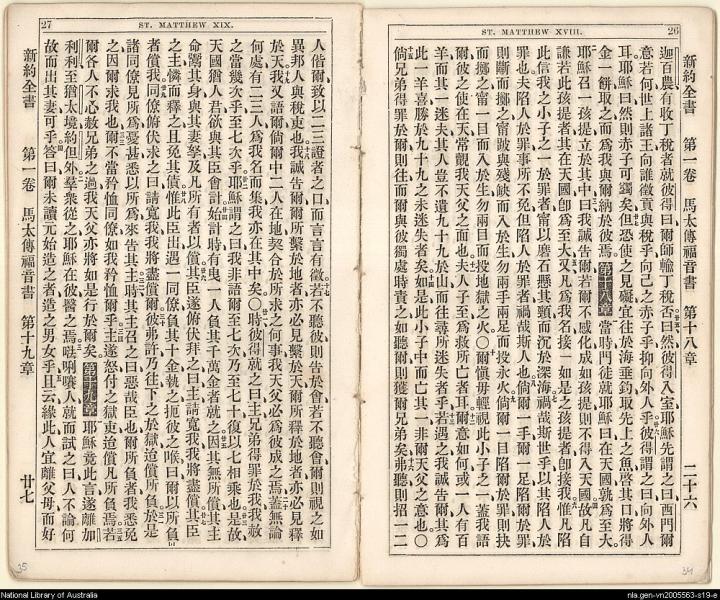 ST. MATTHEW XVIII.
26
新約全書 第一卷 馬太傳福音書 第十八章 二十六
迦百農有收丁稅者就彼得曰爾師輸丁稅否曰然彼得入室耶穌先謂之曰西門爾
意若何世上諸王向誰徵貢與稅乎向己之赤子乎抑向外人乎彼得謂之曰向外人
耳耶穌曰然則赤子可蠲矣但恐使之見礙宜往於海垂鈎取先上之魚啓其口將得
金一餅取之而爲我與爾納於彼焉第十八章當時門徒就耶穌曰在天國孰爲至大
耶穌召一孩提立於其中曰我誠告爾若爾不感化成如孩提則不得入天國故凡自
謙若此孩提者其在天國卽爲至大又凡爲我名接一如是之孩提者卽接我惟凡陷
此信我之小子之一於罪者甯以磨石懸其頸而沉於深海禍哉斯世乎以其陷人於
罪也夫陷人於罪事所不免但陷人於罪者禍哉斯人也倘爾一手爾一足陷爾於罪
則斷而擲之甯跛與殘缺而入於生勿兩手兩足而投永火倘爾一目陷爾於罪則抉
而擲之甯一目而入於生勿兩目而投地獄之火〇爾愼毋輕視此小子之一蓋我語
爾彼之使在天常觀我天父之面也夫人子至爲救所亡者耳爾意如何或一人有百
羊而其一迷夫其人豈不遺九十九於山而往尋所迷失者乎若遇之我誠告爾其爲
此一羊喜勝於九十九之未迷失者矣如是此小子中而亡其一非爾天父之意也〇
倘兄弟得罪於爾則往而爾與彼獨處時責之如聽爾則獲爾兄弟矣弗聽則招一二
34
27
ST. MATTHEW XIX.
人偕爾致以二三證者之口而言言有徵若不聽彼則告於會若不聽會爾則視之如
異邦人與稅吏也我誠告爾爾所繫於地者亦必見繫於天爾所釋於地者亦必見釋
於天我又語爾倘爾中二人在地契合於所求之何事我天父必爲彼成之焉蓋無論
何處有二三人爲我名而集我亦在其中矣〇時彼得就之曰主兄弟得罪於我我赦
之當幾次乎至七次乎耶穌謂之曰我非語爾至七次乃至七十復以七相乘也是故
天國猶人君欲與其臣會計始計時有曳一人負其千萬金者就之因其無所償其主
命鬻其身與其妻孥及凡所有者以償其臣遂俯伏拜之曰主請寬我我將盡償其臣
之主憐而釋之且免其債惟此臣出遇一同僚負其十金執之扼彼之喉曰爾以所負
者償我同僚俯伏求之曰請寬我我將盡償爾彼弗許乃往下之於獄迨償所負於是
諸同僚見所爲憂甚悉以所爲來告其主時其主召之曰惡哉臣也爾所負者我悉免
之因爾求我也爾不當矜恤同僚如我矜恤爾乎主遂怒付之獄吏迨償凡所負焉若
爾各人不心赦兄弟之過我天父亦將如是行於爾矣第十九章耶穌竟此言遂離加
利利至猶太境約但外羣衆從之耶穌在彼醫之焉𠵽唎㘔人就而試之曰人不論何
故而出其妻可乎答曰爾未讀元始造之者造之男女乎且云緣此人宜離父母而好
新約全書 第一卷 馬太傳福音書 第十九章 廿七
35
National Library of Australia
nla.gen-vn2005563-s19-e